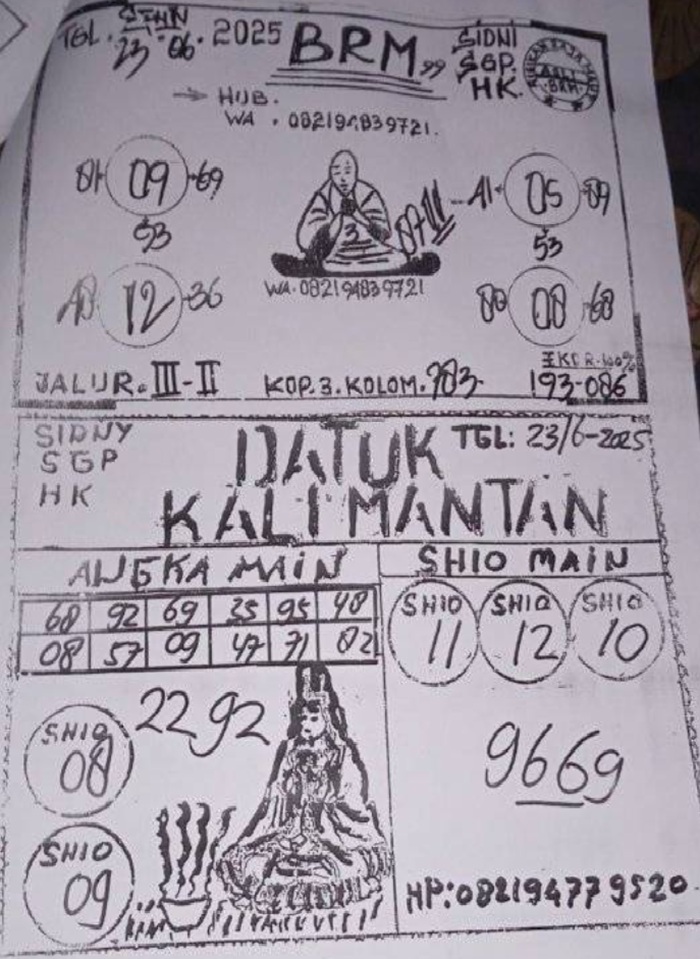 TGL. SENN 23.06.2025
BRM
SIDNI
SGP.
HK.
ASLI
BRM
HUB.
WA. 082194839721.
09 69
53
12 36
3
11
A1 05 09
53
08 68
WA. 082194839721
JALUR. III-II
KOP. 3. KOLOM. 983
EKOR. 100%
193-086
SIDNY
SGP
HK
DATUK
KALIMANTAN
TGL: 23/6-2025
ANGKA MAIN
SHIO MAIN
68 92 69 35 95 48
08 57 09 47 71 02
SHIO 11
SHIO 12
SHIO 10
2292
SHIO 08
9669
SHIO 09
HP: 082194779520